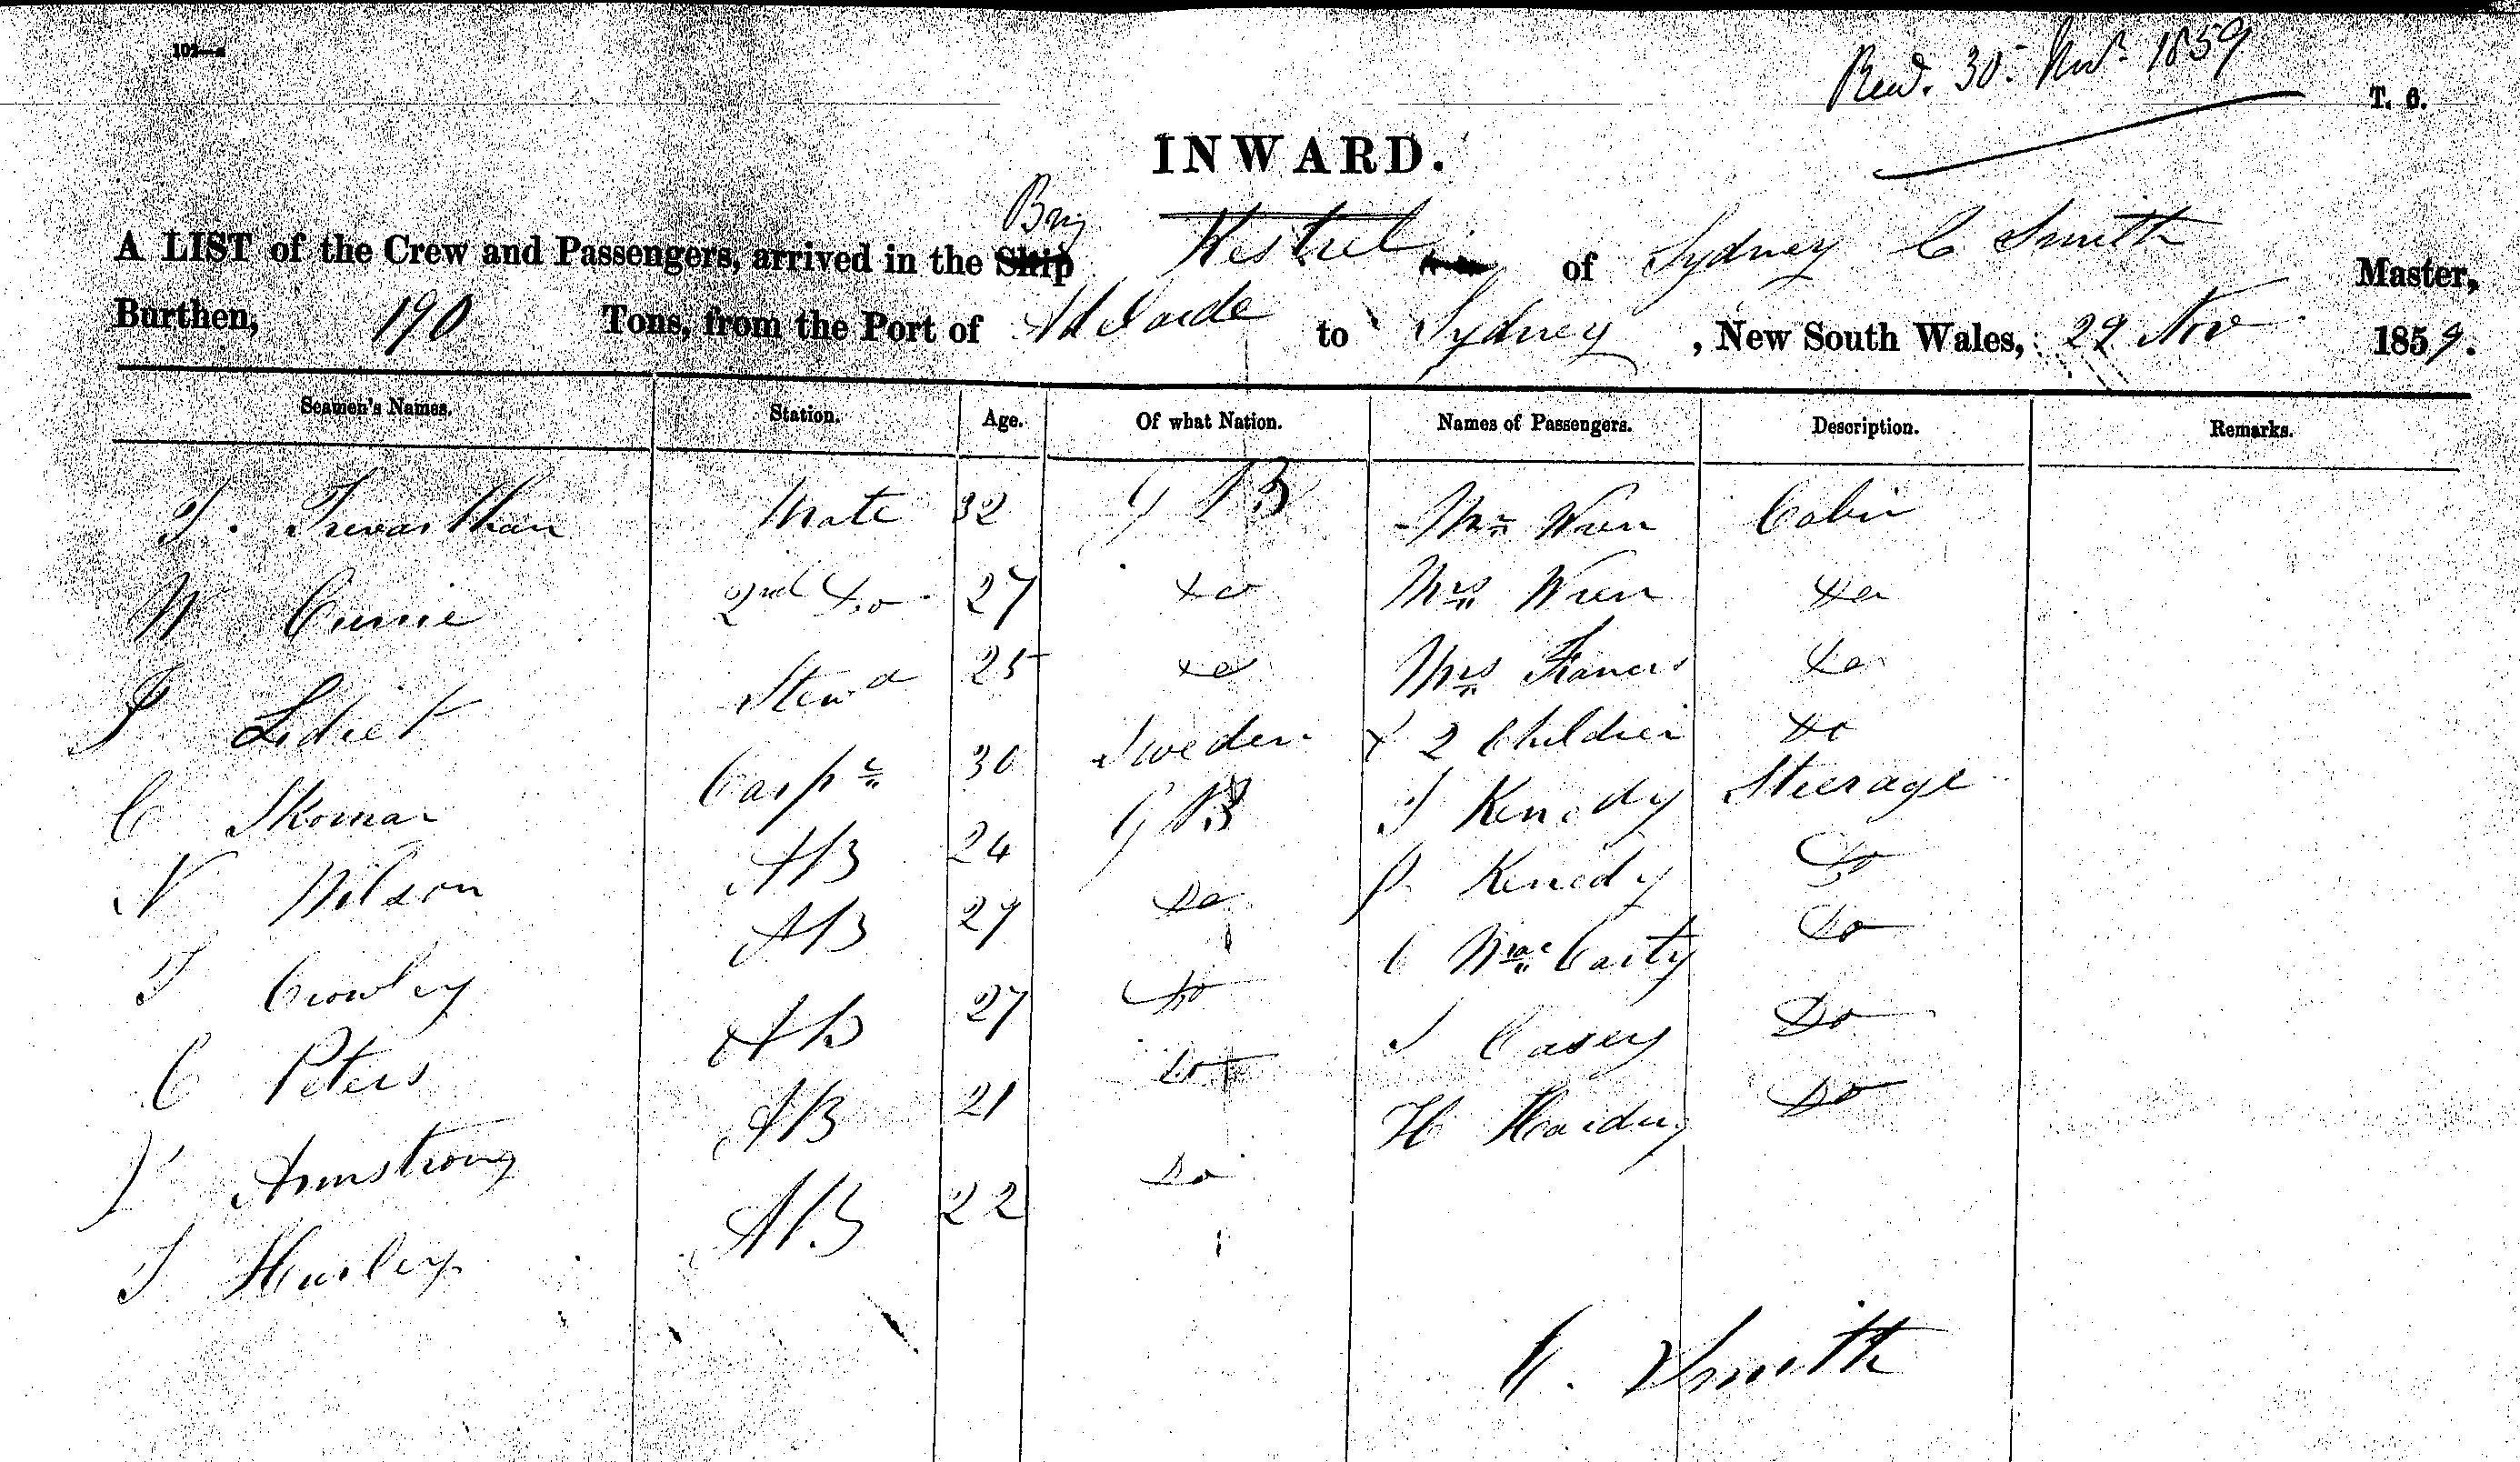 Recd. 30 Novr. 1859
T. 6.
INWARD.
Brig
A LIST of the Crew and Passengers, arrived in the Ship Kestrel of Sydney C Smith Master,
Burthen, 190 Tons, from the Port of Adelaide to Sydney, New South Wales, 29 Nov 1859.
Seamen's Names. Station. Age. Of what Nation. Names of Passengers. Description. Remarks.
T. Trevarthan Mate 32 G B Mr Wren Cabin
W Currie 2nd Do 27 Do Mrs Wren Do
Stewd 25 Do Mrs Francis Do
C Skomar Carpr 30 Sweden & 2 Children Do
N Nilson AB 24 G B J Kenedy Steerage
T Crowley AB 27 Do P. Kenedy Do
C Peters AB 27 Do C MacCarty Do
J Armstrong AB 21 Do J Casey Do
T Hurley AB 22 Do H Do
C. Smith